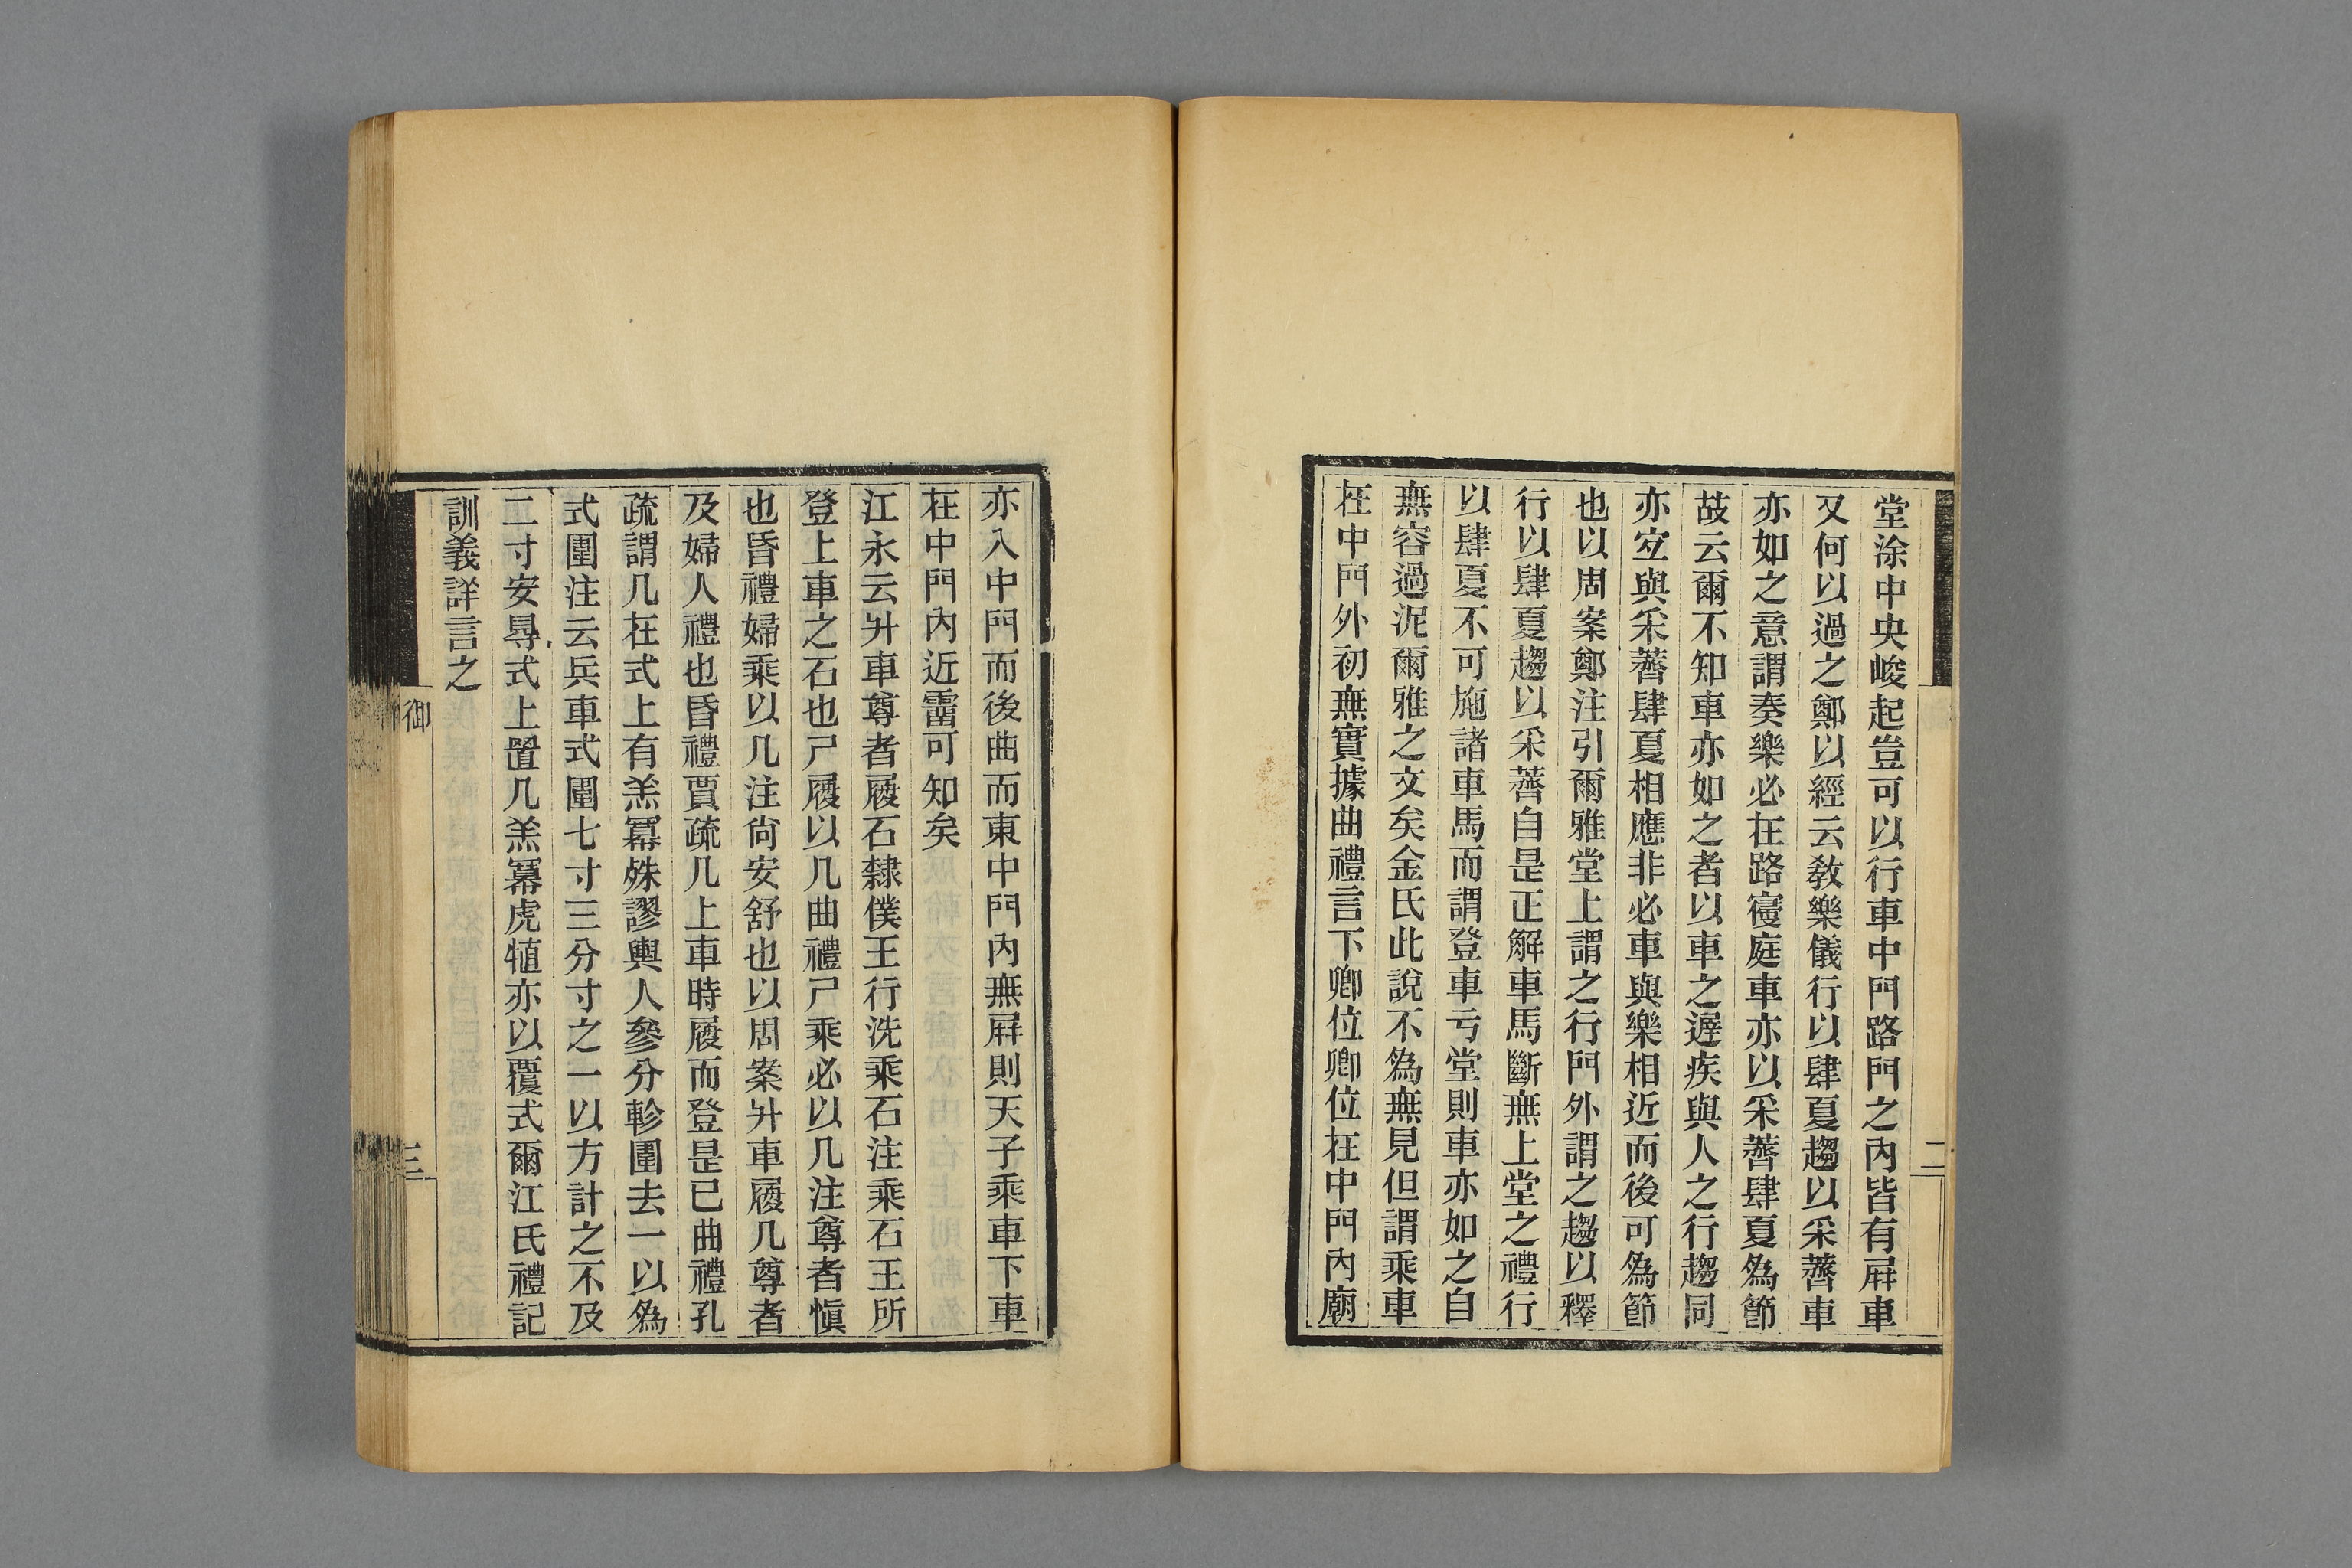 堂涂中央峻起豈可以行車中門路門之內皆有屛車
又何以過之鄭以經云敎樂儀行以肆夏趨以采薺車
亦如之意謂奏樂必在路寑庭車亦以采薺肆夏為節
故云爾不知車亦如之者以車之遲疾與人之行趨同
亦宐與采薺肆夏相應非必車與樂相近而後可為節
也以周案鄭注引爾雅堂上謂之行門外謂之趨以釋
行以肆夏趨以采薺自是正解車馬斷無上堂之禮行
以肆夏不可施諸車馬而謂登車亏堂則車亦如之自
無容過泥爾雅之文矣金氏此說不為無見但謂乘車
在中門外初無實據曲禮言下卿位卿位在中門內廟
二
亦入中門而後曲而東中門內無屛則天子乘車下車
在中門內近霤可知矣
江永云升車尊者履石隸僕王行洗乘石注乘石王所
登上車之石也尸履以几曲禮尸乘必以几注尊者愼
也昏禮婦乘以几注尙安舒也以周案升車履几尊者
及婦人禮也昏禮賈疏几上車時履而登是已曲禮孔
疏謂几在式上有羔冪殊謬輿人參分軫圍去一以為
式圍注云兵車式圍七寸三分寸之一以方計之不及
二寸安䙷式上置几羔冪虎犆亦以覆式爾江氏禮記
訓義詳言之
御
三